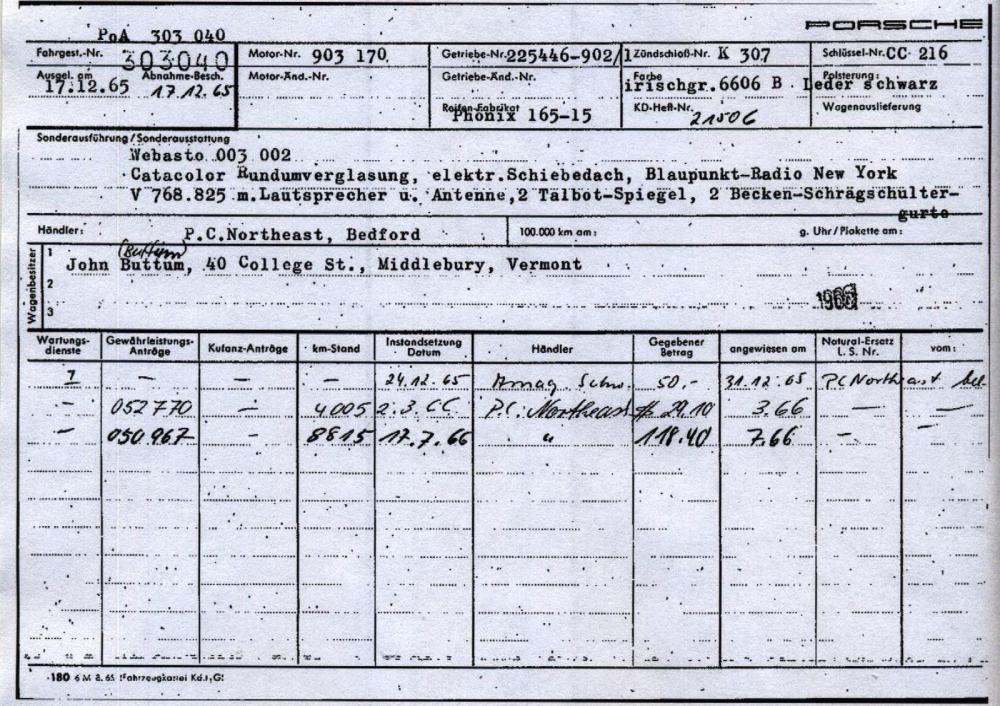 PORSCHE
PoA 303 040
Fahrgest.-Nr. 303040 Motor-Nr. 903 170 Getriebe-Nr. 225446-902/1 Zündschloß-Nr. K 307 Schlüssel-Nr. CC 216
Ausgel. am 17.12.65 Abnahme-Besch. 17.12.65 Motor-Änd.-Nr. Getriebe-Änd.-Nr. Farbe irischgr.6606 B Polsterung: Leder schwarz
Reifen-Fabrikat Phönix 165-15 KD-Heft-Nr. 21506 Wagenauslieferung
Sonderausführung/Sonderausstattung
Webasto 003 002
Catacolor Rundumverglasung, elektr.Schiebedach, Blaupunkt-Radio New York
V 768.825 m.Lautsprecher u. Antenne,2 Talbot-Spiegel, 2 Becken-Schrägschulter-
gurte
Händler: P.C.Northeast, Bedford 100.000 km am: g. Uhr/Plakette am:
Wagenbesitzer
(Buttum)
1 John Buttum, 40 College St., Middlebury, Vermont
2
3
Wartungs-dienste Gewährleistungs-Anträge Kulanz-Anträge km-Stand Instandsetzung Datum Händler Gegebener Betrag angewiesen am Natural-Ersatz L. S. Nr. vom:
1 — — — 24.12.65 Amag. Schw. 50,- 31.12.65 PC Northeast bel.
- 052770 — 4005 2.3.66 P.C. Northeast $ 29.10 3.66 — —
- 050967 - 8815 17.7.66 " 118.40 7.66 — -
180 6 M 8. 65 Fahrzeugkartei